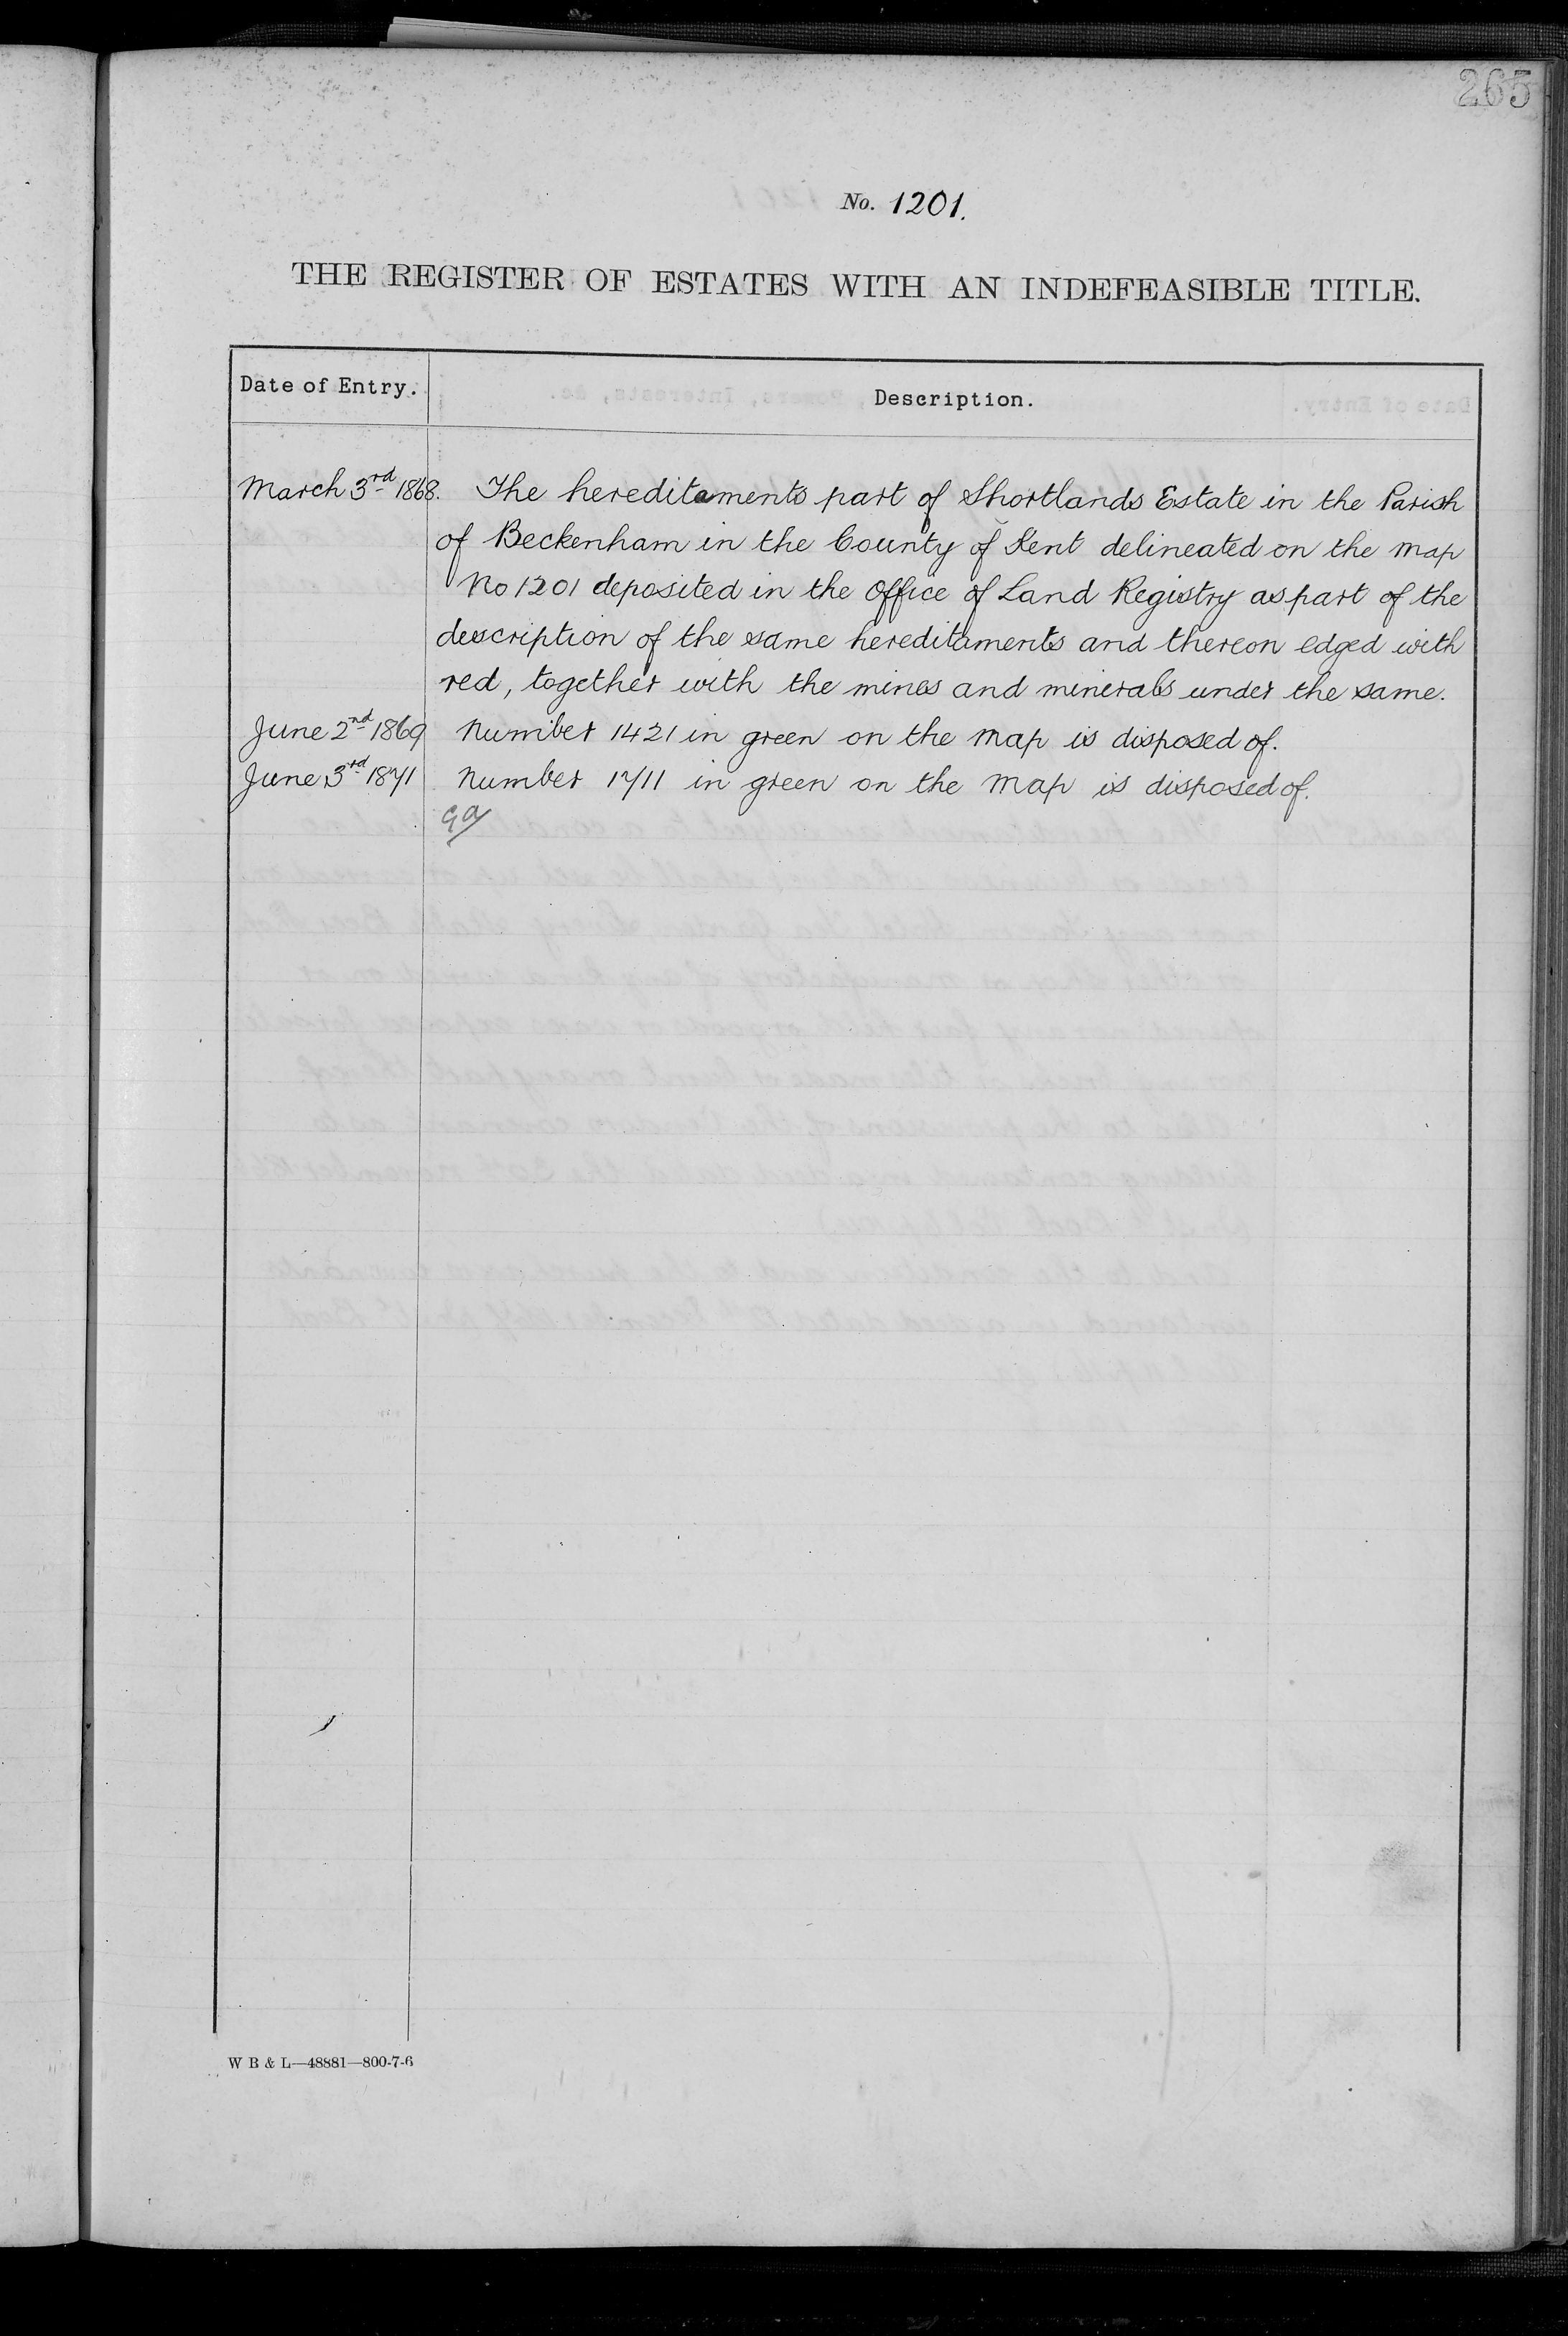 265
No. 1201.
THE REGISTER OF ESTATES WITH AN INDEFEASIBLE TITLE.
Date of Entry. Description.
March 3rd 1868. The hereditaments part of Shortlands Estate in the Parish
of Beckenham in the County of Kent delineated on the map
No 1201 deposited in the Office of Land Registry as part of the
description of the same hereditaments and thereon edged with
red, together with the mines and minerals under the same.
June 2nd 1869 Number 1421 in green on the map is disposed of.
June 3rd 1871 Number 1711 in green on the Map is disposed of.
W B & L—48881—800-7-6